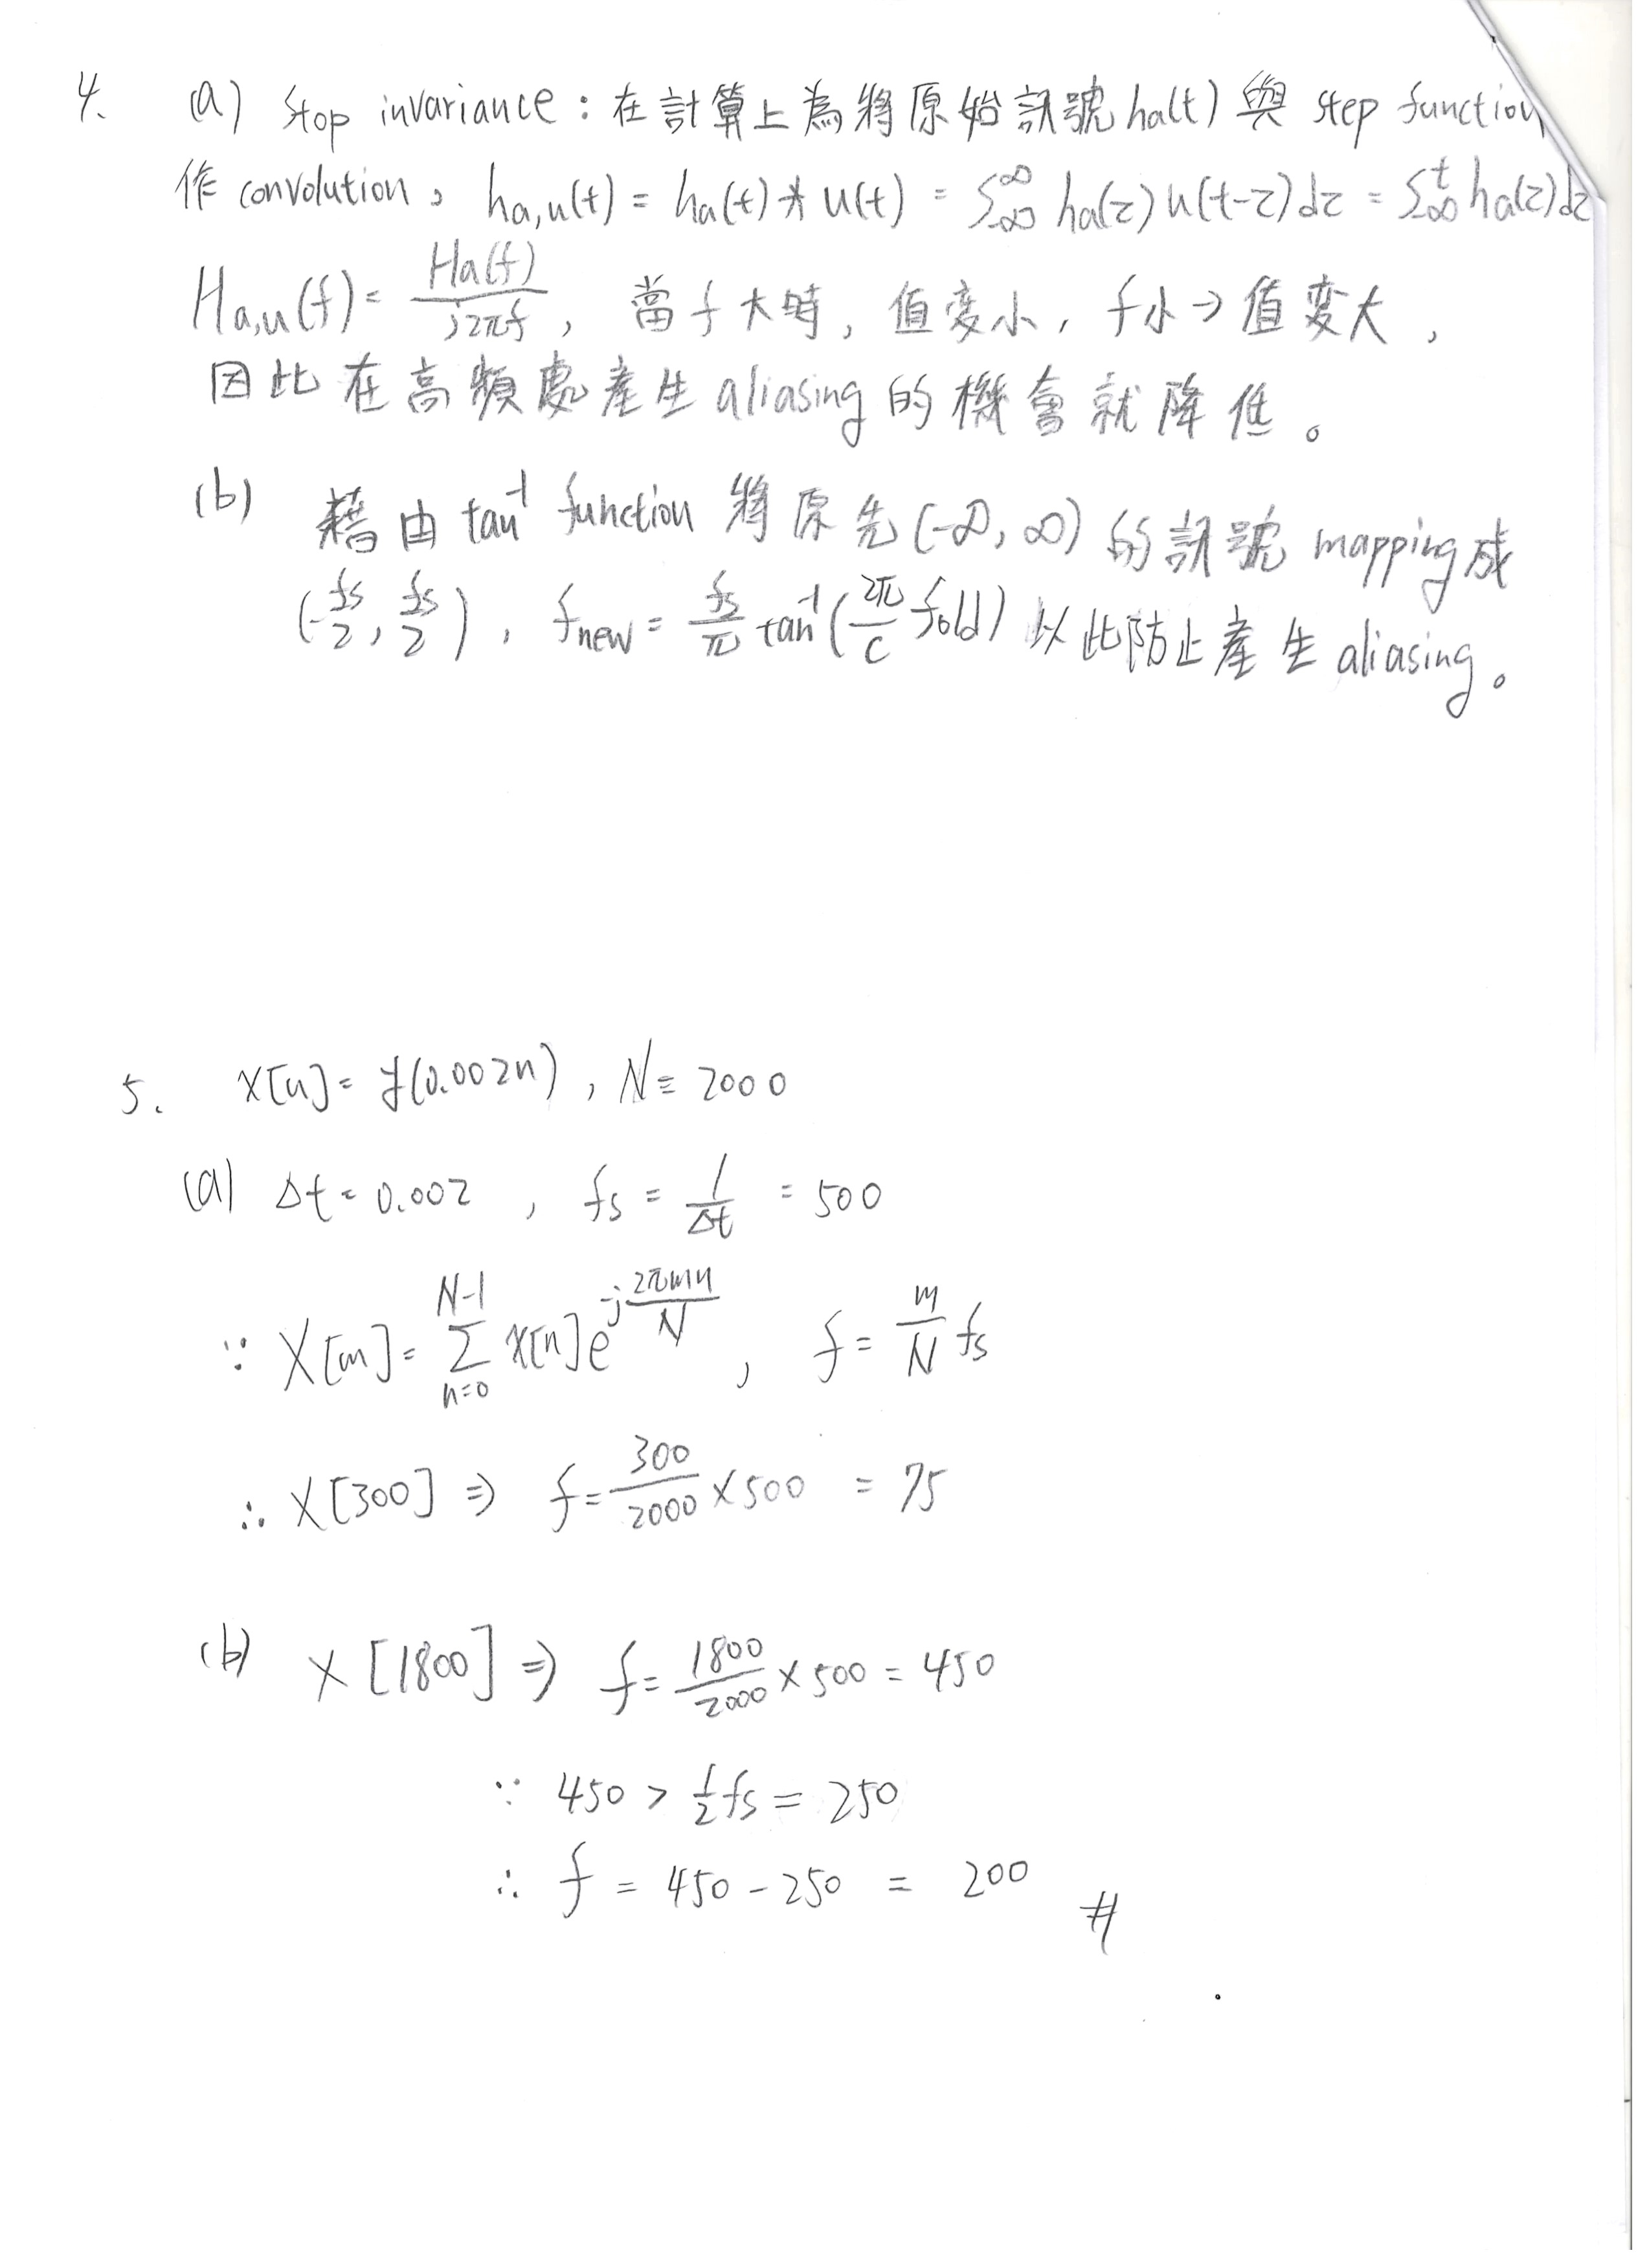 4. (a) Stop invariance : 在計算上為將原始訊號 ha(t) 與 step function
作 convolution , ha,u(t) = ha(t) * u(t) = ∫_-∞^∞ ha(τ) u(t-τ) dτ = ∫_-∞^t ha(τ) dτ
Ha,u(f) = Ha(f)/j2πf , 當 f 大時, 值变小, f小 → 值变大,
因此在高頻處產生 aliasing 的機會就降低。
(b) 藉由 tan^-1 function 將原先 (-∞, ∞) 的訊號 mapping 成
(-fs/2, fs/2) , fnew = fs/π tan^-1 (2π/c fold) 以此防止產生 aliasing。
5. x[n] = y(0.002n) , N = 2000
(a) Δt = 0.002 , fs = 1/Δt = 500
∵ X[m] = Σ_{n=0}^{N-1} x[n] e^{-j 2πmn/N} , f = m/N fs
∴ X[300] ⇒ f = 300/2000 × 500 = 75
(b) X[1800] ⇒ f = 1800/2000 × 500 = 450
∵ 450 > 1/2 fs = 250
∴ f = 450 - 250 = 200 #